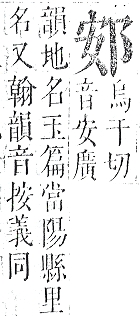 烏干切
音安廣
韻地名玉篇當陽縣里
名又翰韻音按義同